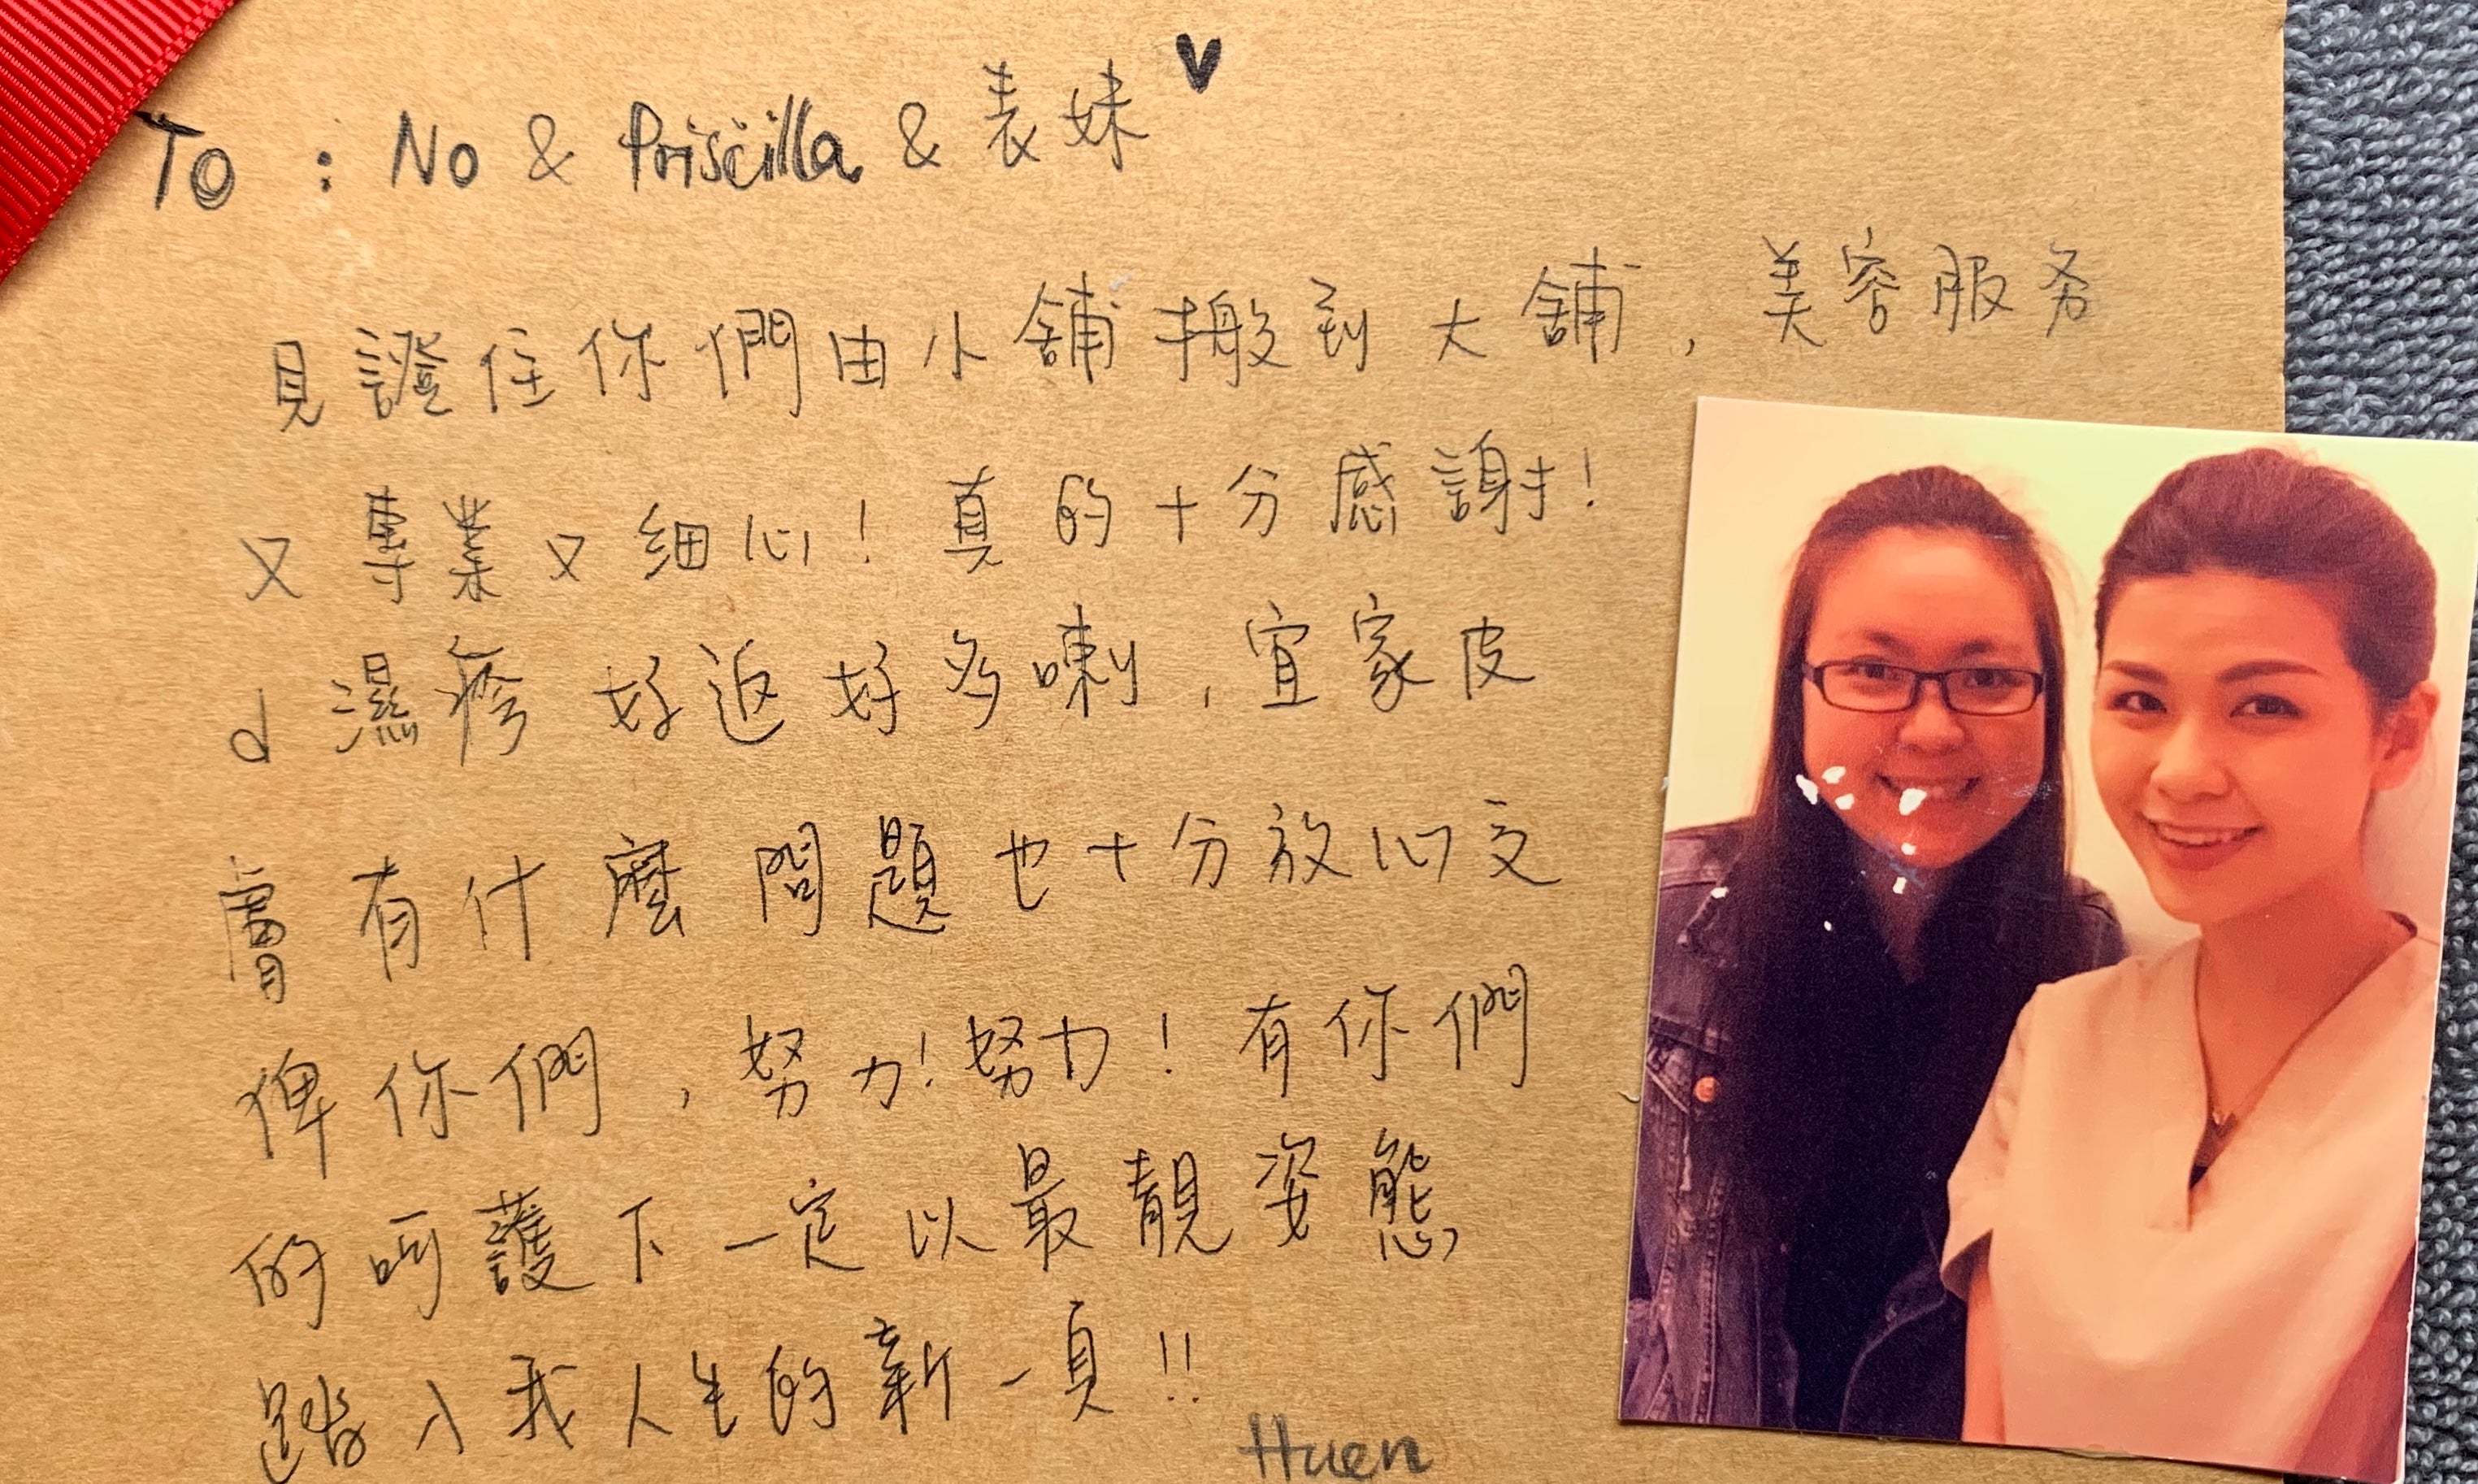 To : No & Priscilla & 表妹 ♥
見證住你們由小舖搬到大舖，美容服务
又專業又細心！真的十分感謝！
d 濕疹好返好多喇，宜家皮
膚有什麼問題也十分放心交
俾你們，努力！努力！有你們
的呵護下一定以最靚姿態
踏入我人生的新一頁!!
Huen